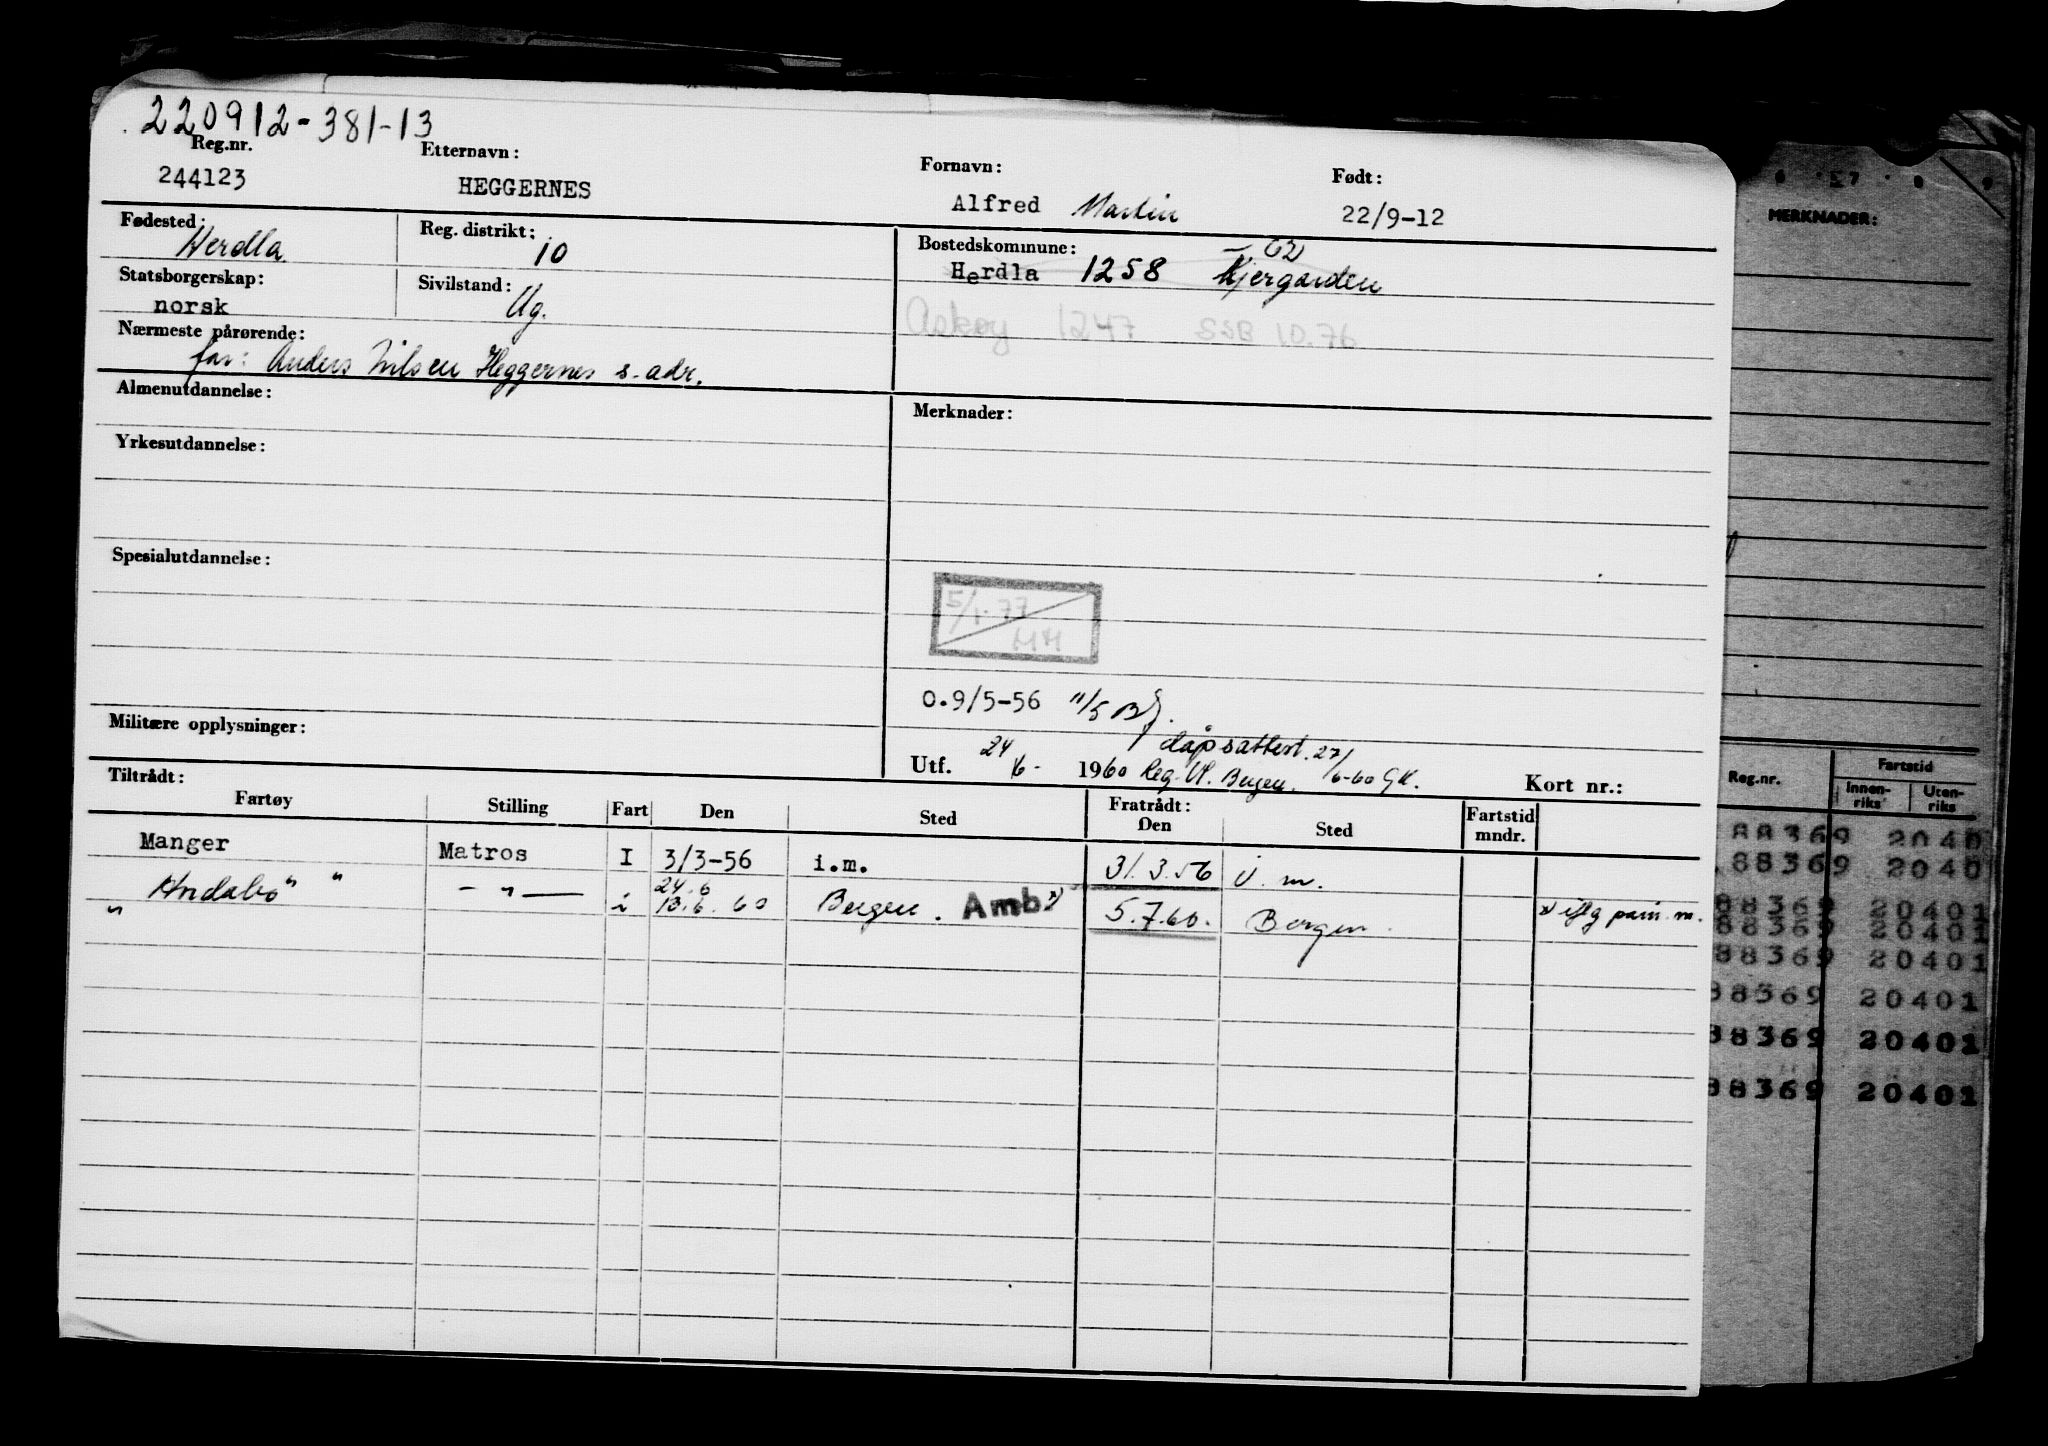 220912-381-13
Reg.nr. Etternavn: Fornavn: Født:
244123 HEGGERNES Alfred Martin 22/9-12
Fødested: Herdla Reg. distrikt: 10 Bostedskommune: Herdla 1258 Kjergarden
Statsborgerskap: norsk Sivilstand: Ug.
Askøy 1247 SSB 10.76
Nærmeste pårørende:
far: Anders Nilsen Heggernes s. adr.
Almenutdannelse: Merknader:
Yrkesutdannelse:
Spesialutdannelse:
5/1.77
MH
0.9/5-56 11/5
Militære opplysninger:
dåpsattest. 27/6-60 GK.
Utf. 24/6- 1960 Reg. Bergen. Kort nr.:
Tiltrådt: Fratrådt:
Fartøy Stilling Fart Den Sted Den Sted Fartstid mndr.
Manger Matros I 3/3-56 i.m. 31.3.56 i.m.
24.6
" " " - " - i 13.6.60 Bergen. Amb. x) 5.7.60. Bergen. x) iflg m.
6 7 8 9
MERKNADER:
Reg.nr. Fartstid
Innenriks Utenriks
88369 2040
88369 2040
88369 20401
88369 20401
88369 20401
88369 20401
88369 20401
88369 20401